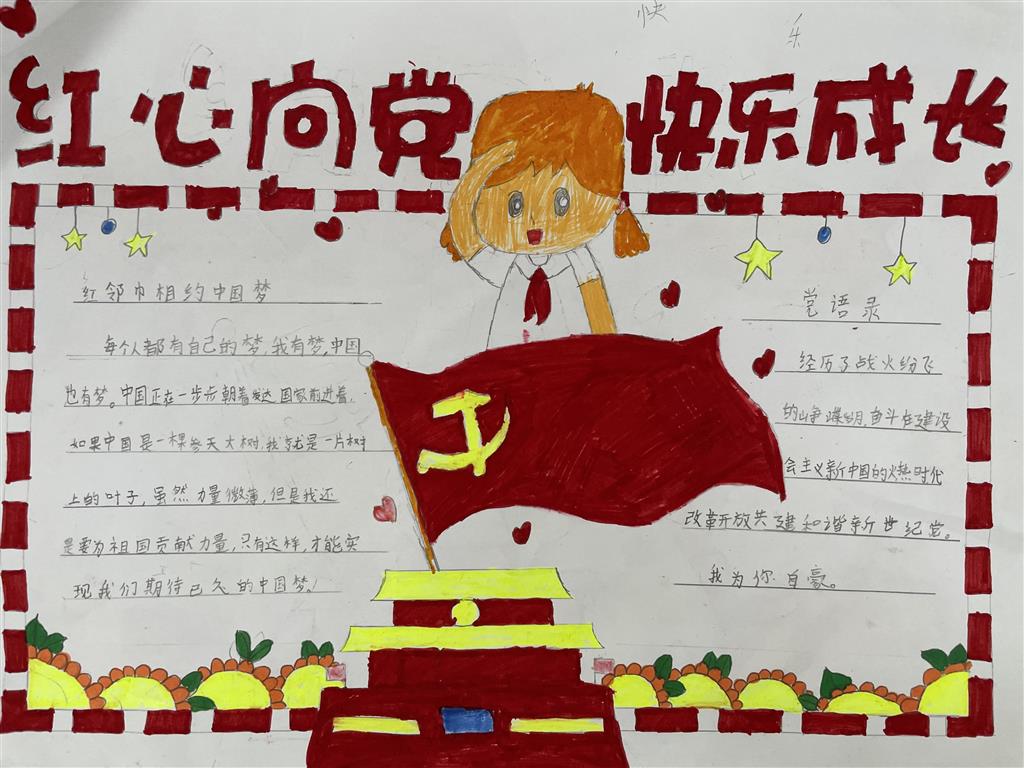 快
乐
红心向党 快乐成长
红邻巾相约中国梦
每个人都有自己的梦,我有梦,中国
也有梦。中国正在一步步朝着发达国家前进着,
如果中国是一棵参天大树,我就是一片树
上的叶子,虽然力量微薄,但是我还
是要为祖国贡献力量,只有这样,才能实
现我们期待已久的中国梦!
党语录
经历了战火纷飞
的峥嵘,奋斗在建设
会主义新中国的火热时代
改革开放共建和谐新世纪党。
我为你自豪。